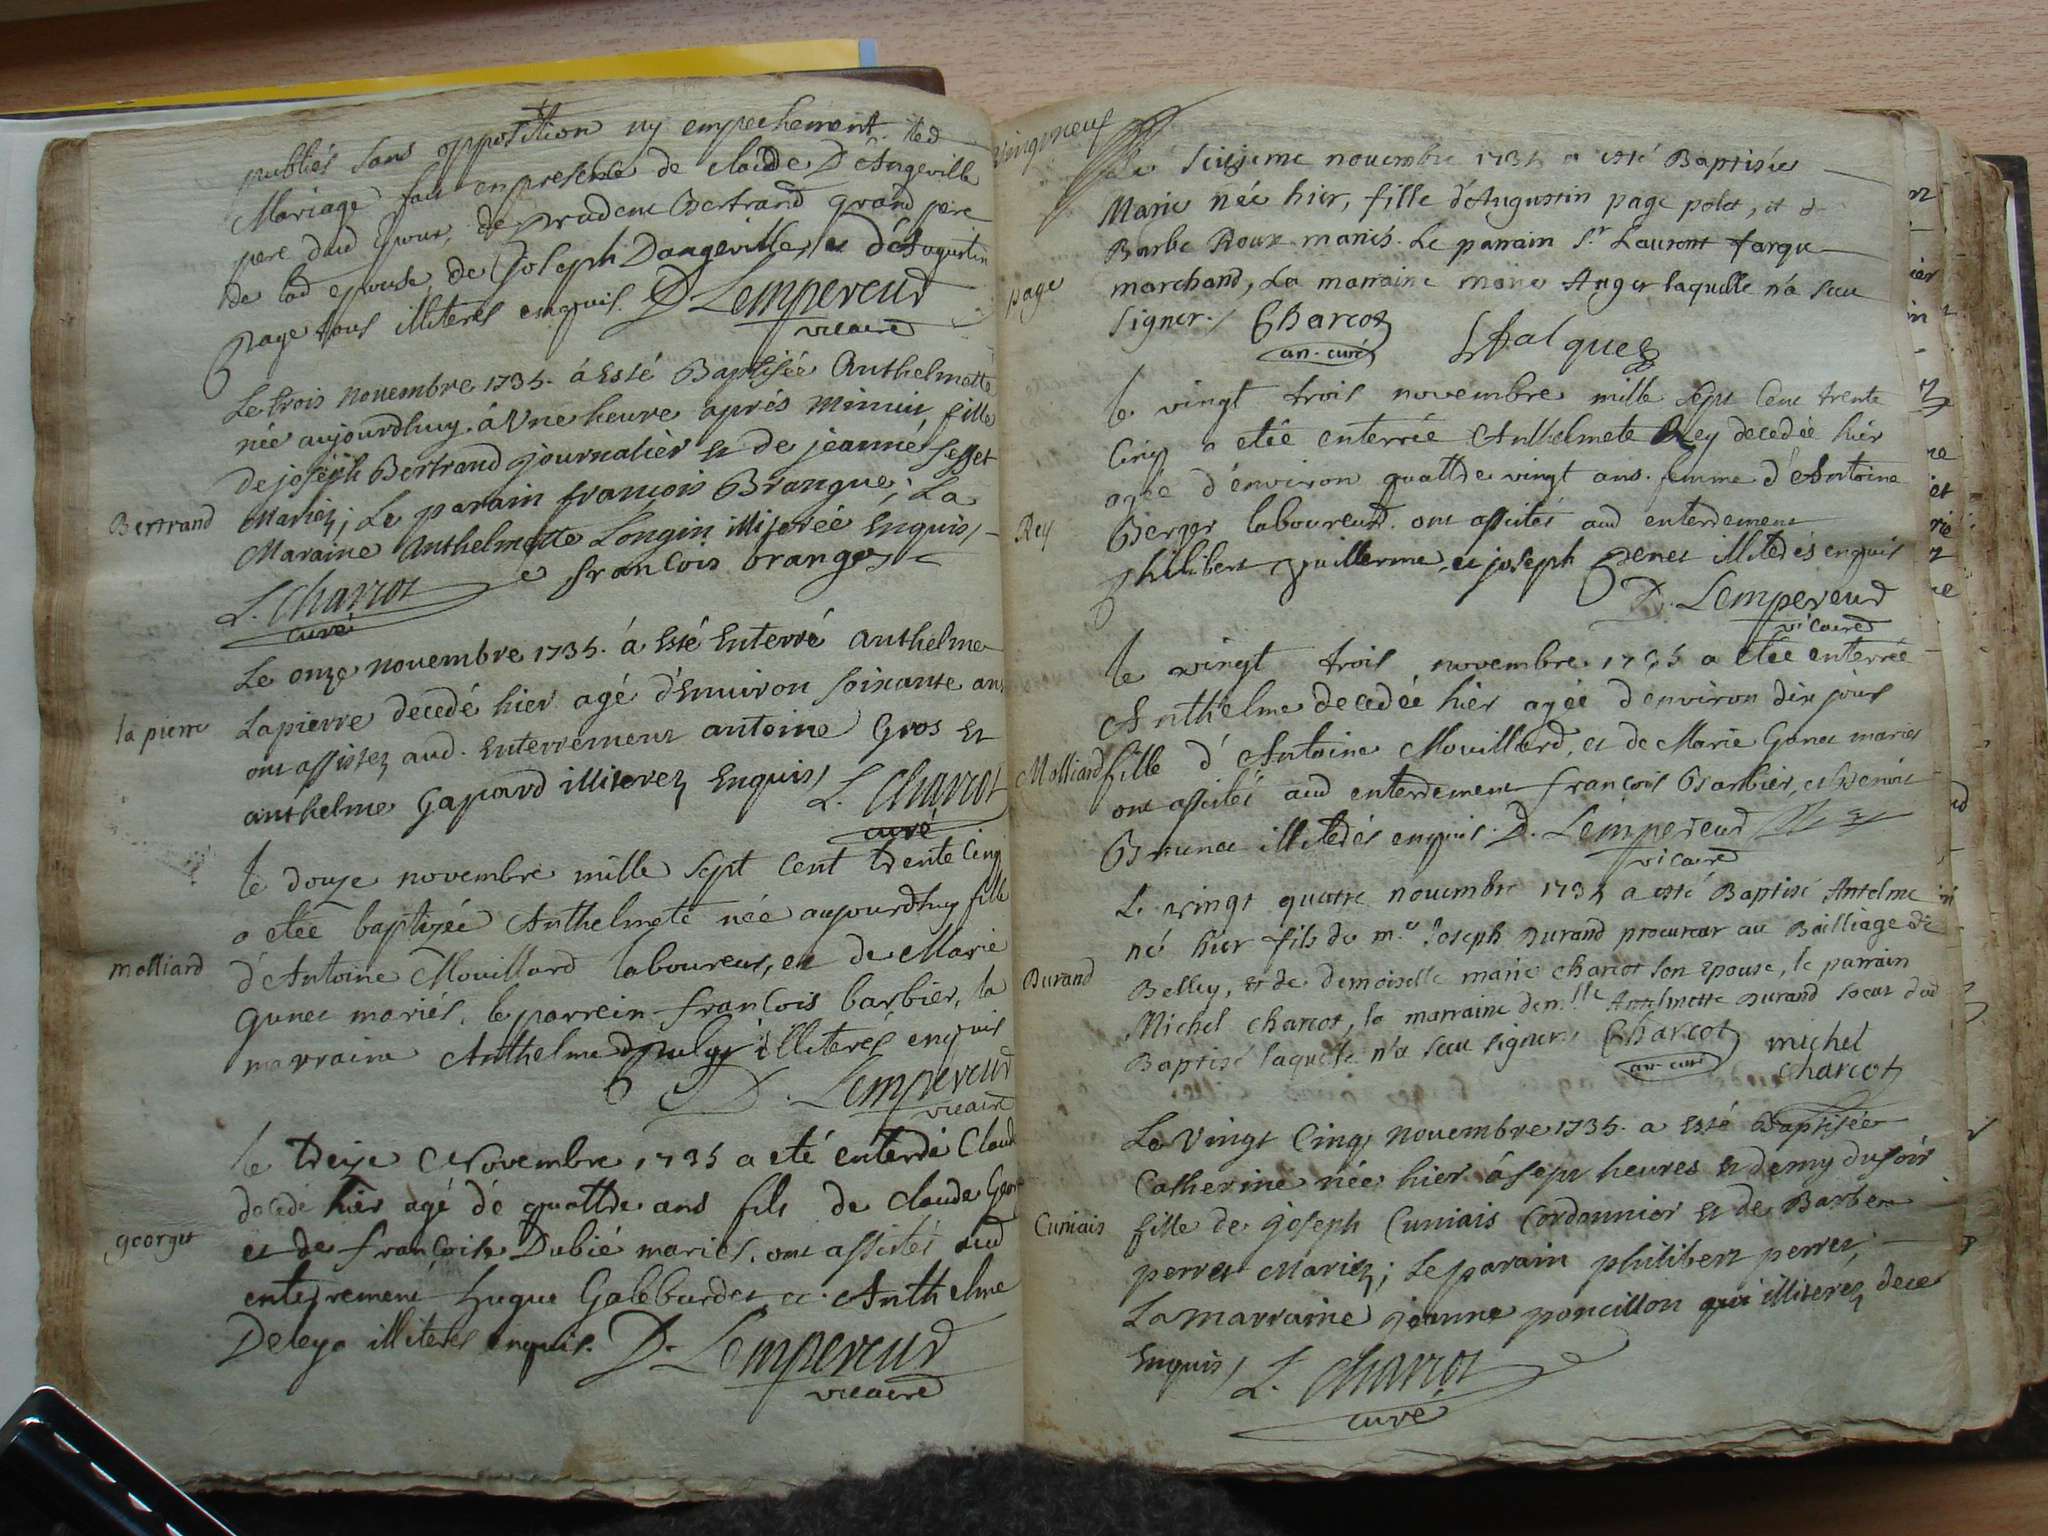 publiés sans opposition ny empechement. led
Mariage fait en presence de claude D'Angeville
pere dud Epoux, de prudent Bertrand grand pere
de lad epouse, de Joseph Dangeville, et d'Augustin
Page tous illiterés enquis. D. Lempereur
vicaire
Le trois novembre 1735. á Esté Baptisée Anthelmette
née aujourdhuy á Une heure aprés minuit, fille
de joseph Bertrand journalier et de jeanne
Bertrand
Mariez; Le parain francois Brangue; La
Maraine Anthelmette Longin illiterée Enquis/
francois brange
L. Charcot
curé
Le onze novembre 1735. á Esté Enterré anthelme
la pierre
Lapierre decedé hier agé d'Environ soixante ans
ont assistez aud. Enterrement antoine Gros Et
anthelme Gapard illiterez Enquis/ L. Charcot
curé
le douze novembre mille sept cent trente cinq
a etée baptizée Anthelmete née aujourdhuy fille
molliard
d'Antoine Mouillard laboureur, et de Marie
Gunet mariés, le parrein francois barbier, la
marraine Anthelme illiterés enquis
D. Lempereur
vicaire
le treize Novembre 1735 a eté enterré Claude
decedé hier agé de quattre ans fils de claude George
georget
et de francoise Dubié mariés, ont assistés aud
enterrement hugue Galeburdet et Anthelme
Deleya illiterés enquis. D. Lempereur
vicaire
vingtneuf
Le seizieme novembre 1735 a esté Baptisée
Marie née hier, fille d'Augustin page polet, et de
Barbe Roux mariés. Le parrain Sr. Laurent farque
page
marchand, La marraine marie Anger laquelle n'a sceu
signer./ Charcot
an. curé
le vingt trois novembre mille sept cent trente
cinq a etée enterrée Anthelmete Rey decedée hier
agée d'environ quattre vingt ans. femme d'Antoine
Rey
Berger laboureur. ont assistés aud enterrement
philibert guillerme, et joseph Genet illiterés enquis
D. Lempereur
vicaire
le vingt trois novembre 1735 a etée enterrée
Anthelme decedée hier agée d'environ dix jours
Molliard
fille d'Antoine Mouillard, et de Marie Gunet mariés
ont assistés aud enterrement francois Barbier, et Benoit
Brunet illiterés enquis. D. Lempereur
vicaire
Le vingt quatre novembre 1735 a esté Baptisé Antelme
né hier fils de m.e Joseph Durand procureur au Bailliage de
Durand
Belley, et de demoiselle marie charcot son epouse, le parrain
Michel charcot, la marraine dem.lle Antelmette Durand soeur dud
Baptisé laquelle n'a sceu signer, Charcot
an. curé
michel
charcot
Le vingt Cinq novembre 1735. a Esté Baptisée
Catherine née hier á sept heures et demy du soir
Cuniais
fille de joseph Cuniais Cordonnier et de Barbe
perret Mariez; Le parain philibert perret,
La marraine jeanne poncillon illiterez de ce
Enquis/ L. Charcot
curé